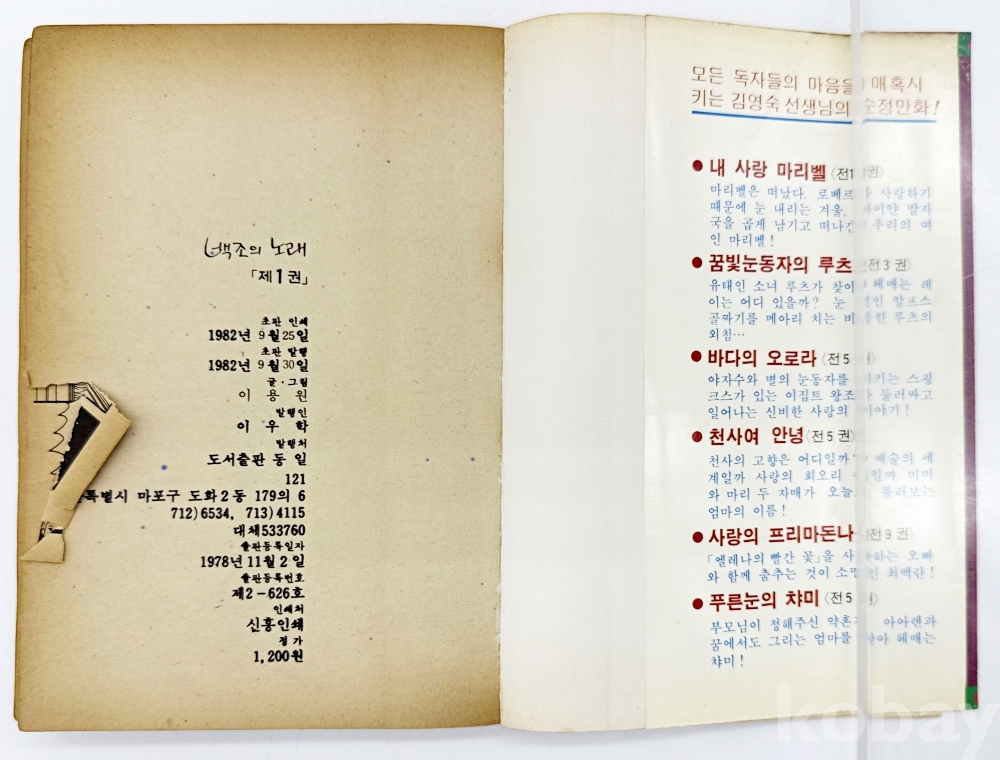 백조의 노래
「제1권」
초판 인쇄
1982년 9월25일
초판 발행
1982년 9월30일
글·그림
이 용 원
발행인
이 우 학
발행처
도서출판 동 일
121
특별시 마포구 도화2동 179의 6
712)6534, 713)4115
대체533760
출판등록일자
1978년 11월 2일
출판등록번호
제2-626호
인쇄처
신흥인쇄
정 가
1,200원
모든 독자들의 마음을 매혹시
키는 김영숙선생님의 순정만화!
● 내 사랑 마리벨 〈전1 권〉
마리벨은 떠났다. 로베르 사랑하기
때문에 눈 내리는 겨울, 하이얀 발자
국을 곱게 남기고 떠나간 우리의 여
인 마리벨!
● 꿈빛눈동자의 루츠 〈전3권〉
유태인 소녀 루츠가 찾아 헤매는 레
이는 어디 있을까? 눈 인 알프스
골짜기를 메아리 치는 비 한 루츠의
외침…
● 바다의 오로라 〈전5권〉
야자수와 별의 눈동자를 지키는 스핑
크스가 있는 이집트 왕조 둘러싸고
일어나는 신비한 사랑의 이야기!
● 천사여 안녕 〈전5권〉
천사의 고향은 어디일까 예술의 세
계일까 사랑의 회오리 일까 미미
와 마리 두 자매가 오늘 불러보는
엄마의 이름!
● 사랑의 프리마돈나 〈전9권〉
「엘레나의 빨간 꽃」을 사 하는 오빠
와 함께 춤추는 것이 소망인 최백란!
● 푸른눈의 챠미 〈전5권〉
부모님이 정해주신 약혼 아아렌과
꿈에서도 그리는 엄마를 찾아 헤매는
챠미!
kobay